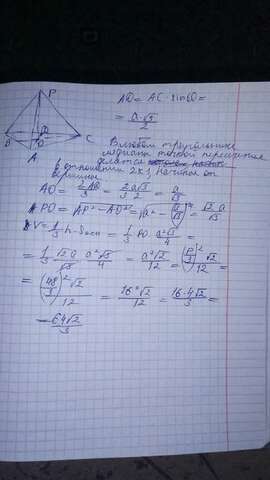 P
AD = AC · sin60 =
= a√3/2
B
D
O
C
A
В любом треугольнике
медианы точкой пересечения
делятся
в отношении 2×1, начиная от
вершины
AO = 2AD/3 = 2a√3/3·2 = a/√3
PO = √AP² - AO² = √a² - (a/√3)² = √2 a/√3
V = 1/3 h · Sосн = 1/3 PO · a²√3/4 =
= 1/3 √2 a/√3 · a²√3/4 = a³√2/12 = (P/3)² √2/12 =
= (48/3)² √2/12 = 16²√2/12 = 16·4√2/3 =
= 64√2/3